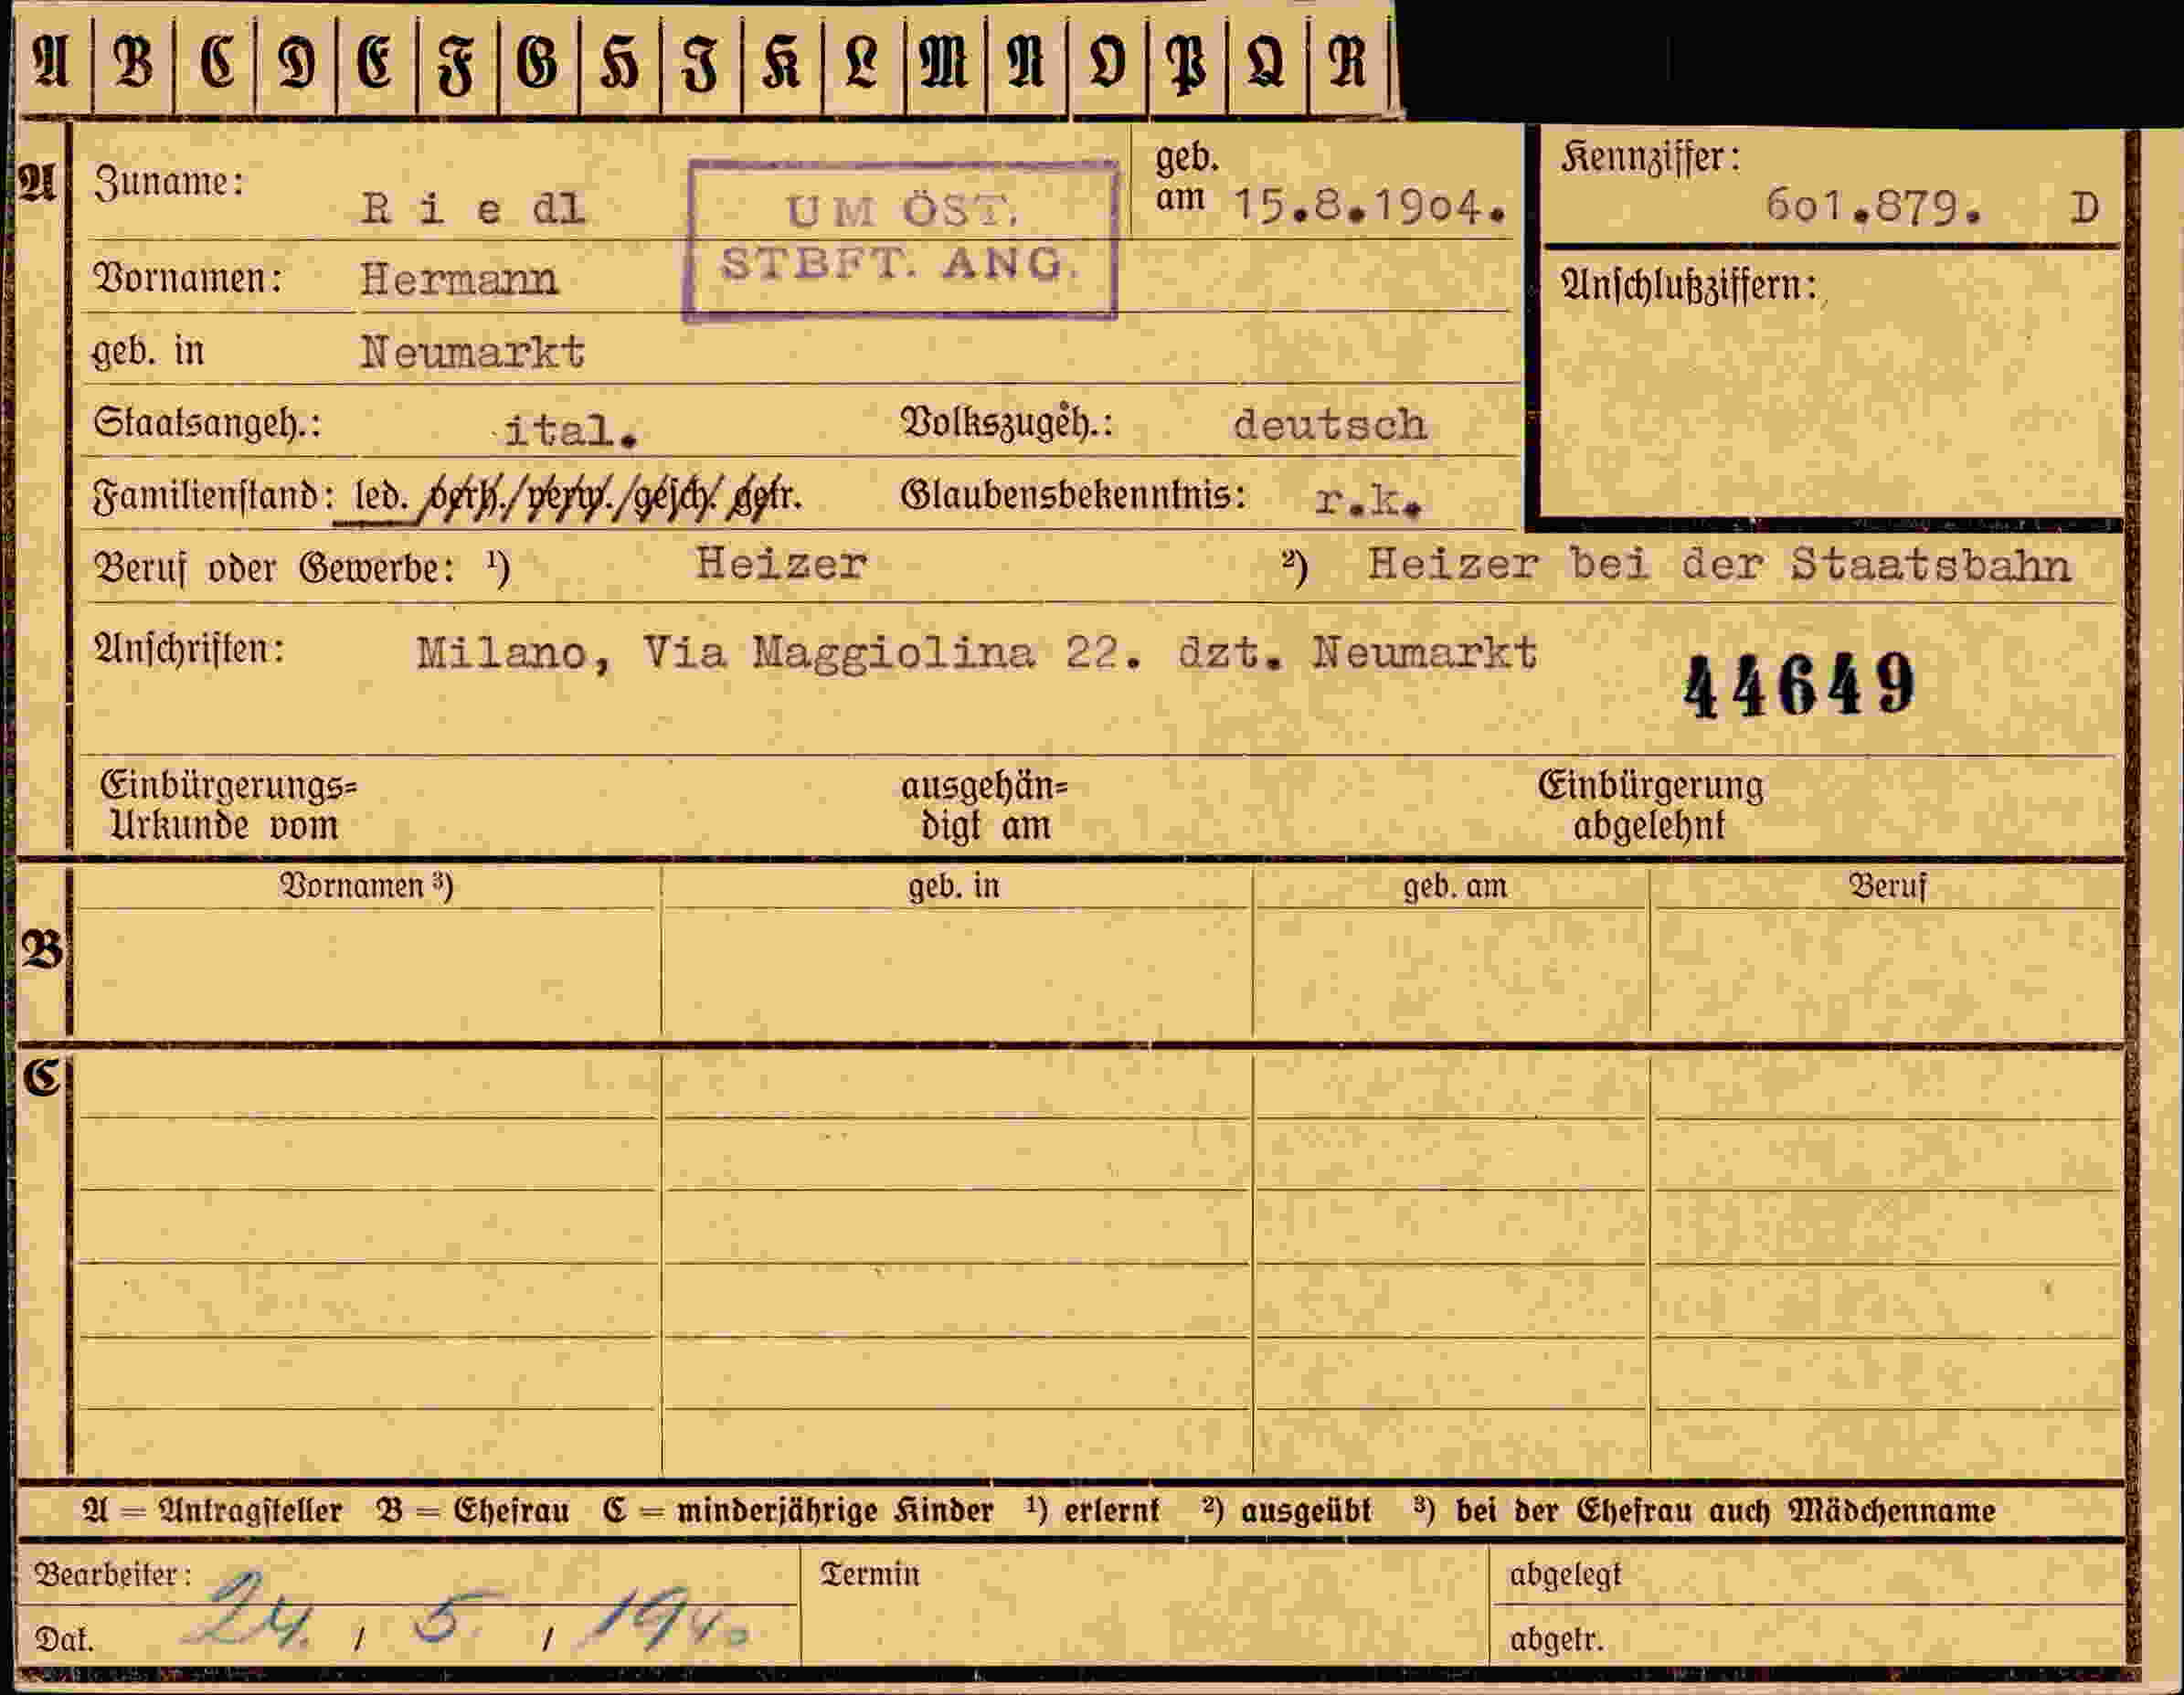 A B C D E F G H I K L M N O P Q R
A Zuname: Riedl
UM ÖST.
STBFT. ANG.
geb. am 15.8.19o4.
Kennziffer: 6o1.879. D
Vornamen: Hermann
Anschlußziffern:
geb. in Neumarkt
Staatsangeh.: ital. Volkszugeh.: deutsch
Familienstand: led. verh./verw./gesch. getr. Glaubensbekenntnis: r.k.
Beruf oder Gewerbe: ¹) Heizer ²) Heizer bei der Staatsbahn
Anschriften: Milano, Via Maggiolina 22. dzt. Neumarkt
44649
Einbürgerungs=
Urkunde vom
ausgehän=
digt am
Einbürgerung
abgelehnt
Vornamen ³) geb. in geb. am Beruf
B
C
A = Antragsteller B = Ehefrau C = minderjährige Kinder ¹) erlernt ²) ausgeübt ³) bei der Ehefrau auch Mädchenname
Bearbeiter: Termin abgelegt
Dat. 24. / 5. / 1940 abgetr.